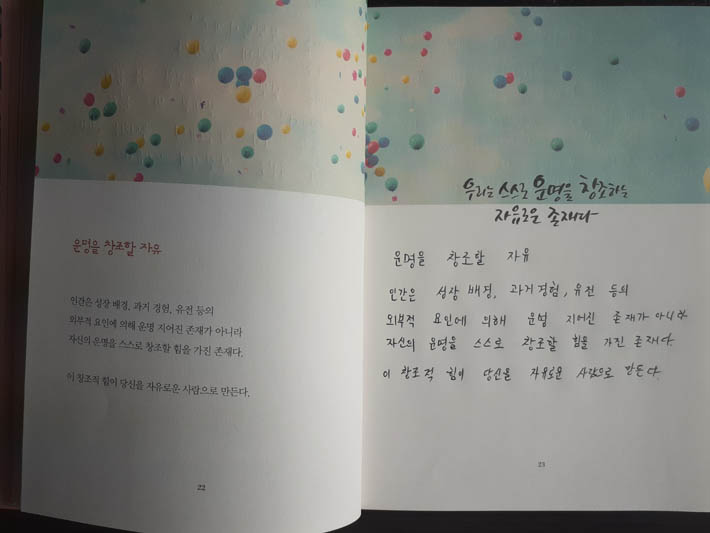 운명을 창조할 자유
인간은 성장 배경, 과거 경험, 유전 등의
외부적 요인에 의해 운명 지어진 존재가 아니라
자신의 운명을 스스로 창조할 힘을 가진 존재다.
이 창조적 힘이 당신을 자유로운 사람으로 만든다.
22
우리는 스스로 운명을 창조하는
자유로운 존재다
운명을 창조할 자유
인간은 성장 배경, 과거 경험, 유전 등의
외부적 요인에 의해 운명 지어진 존재가 아니라
자신의 운명을 스스로 창조할 힘을 가진 존재다
이 창조적 힘이 당신을 자유로운 사람으로 만든다
23